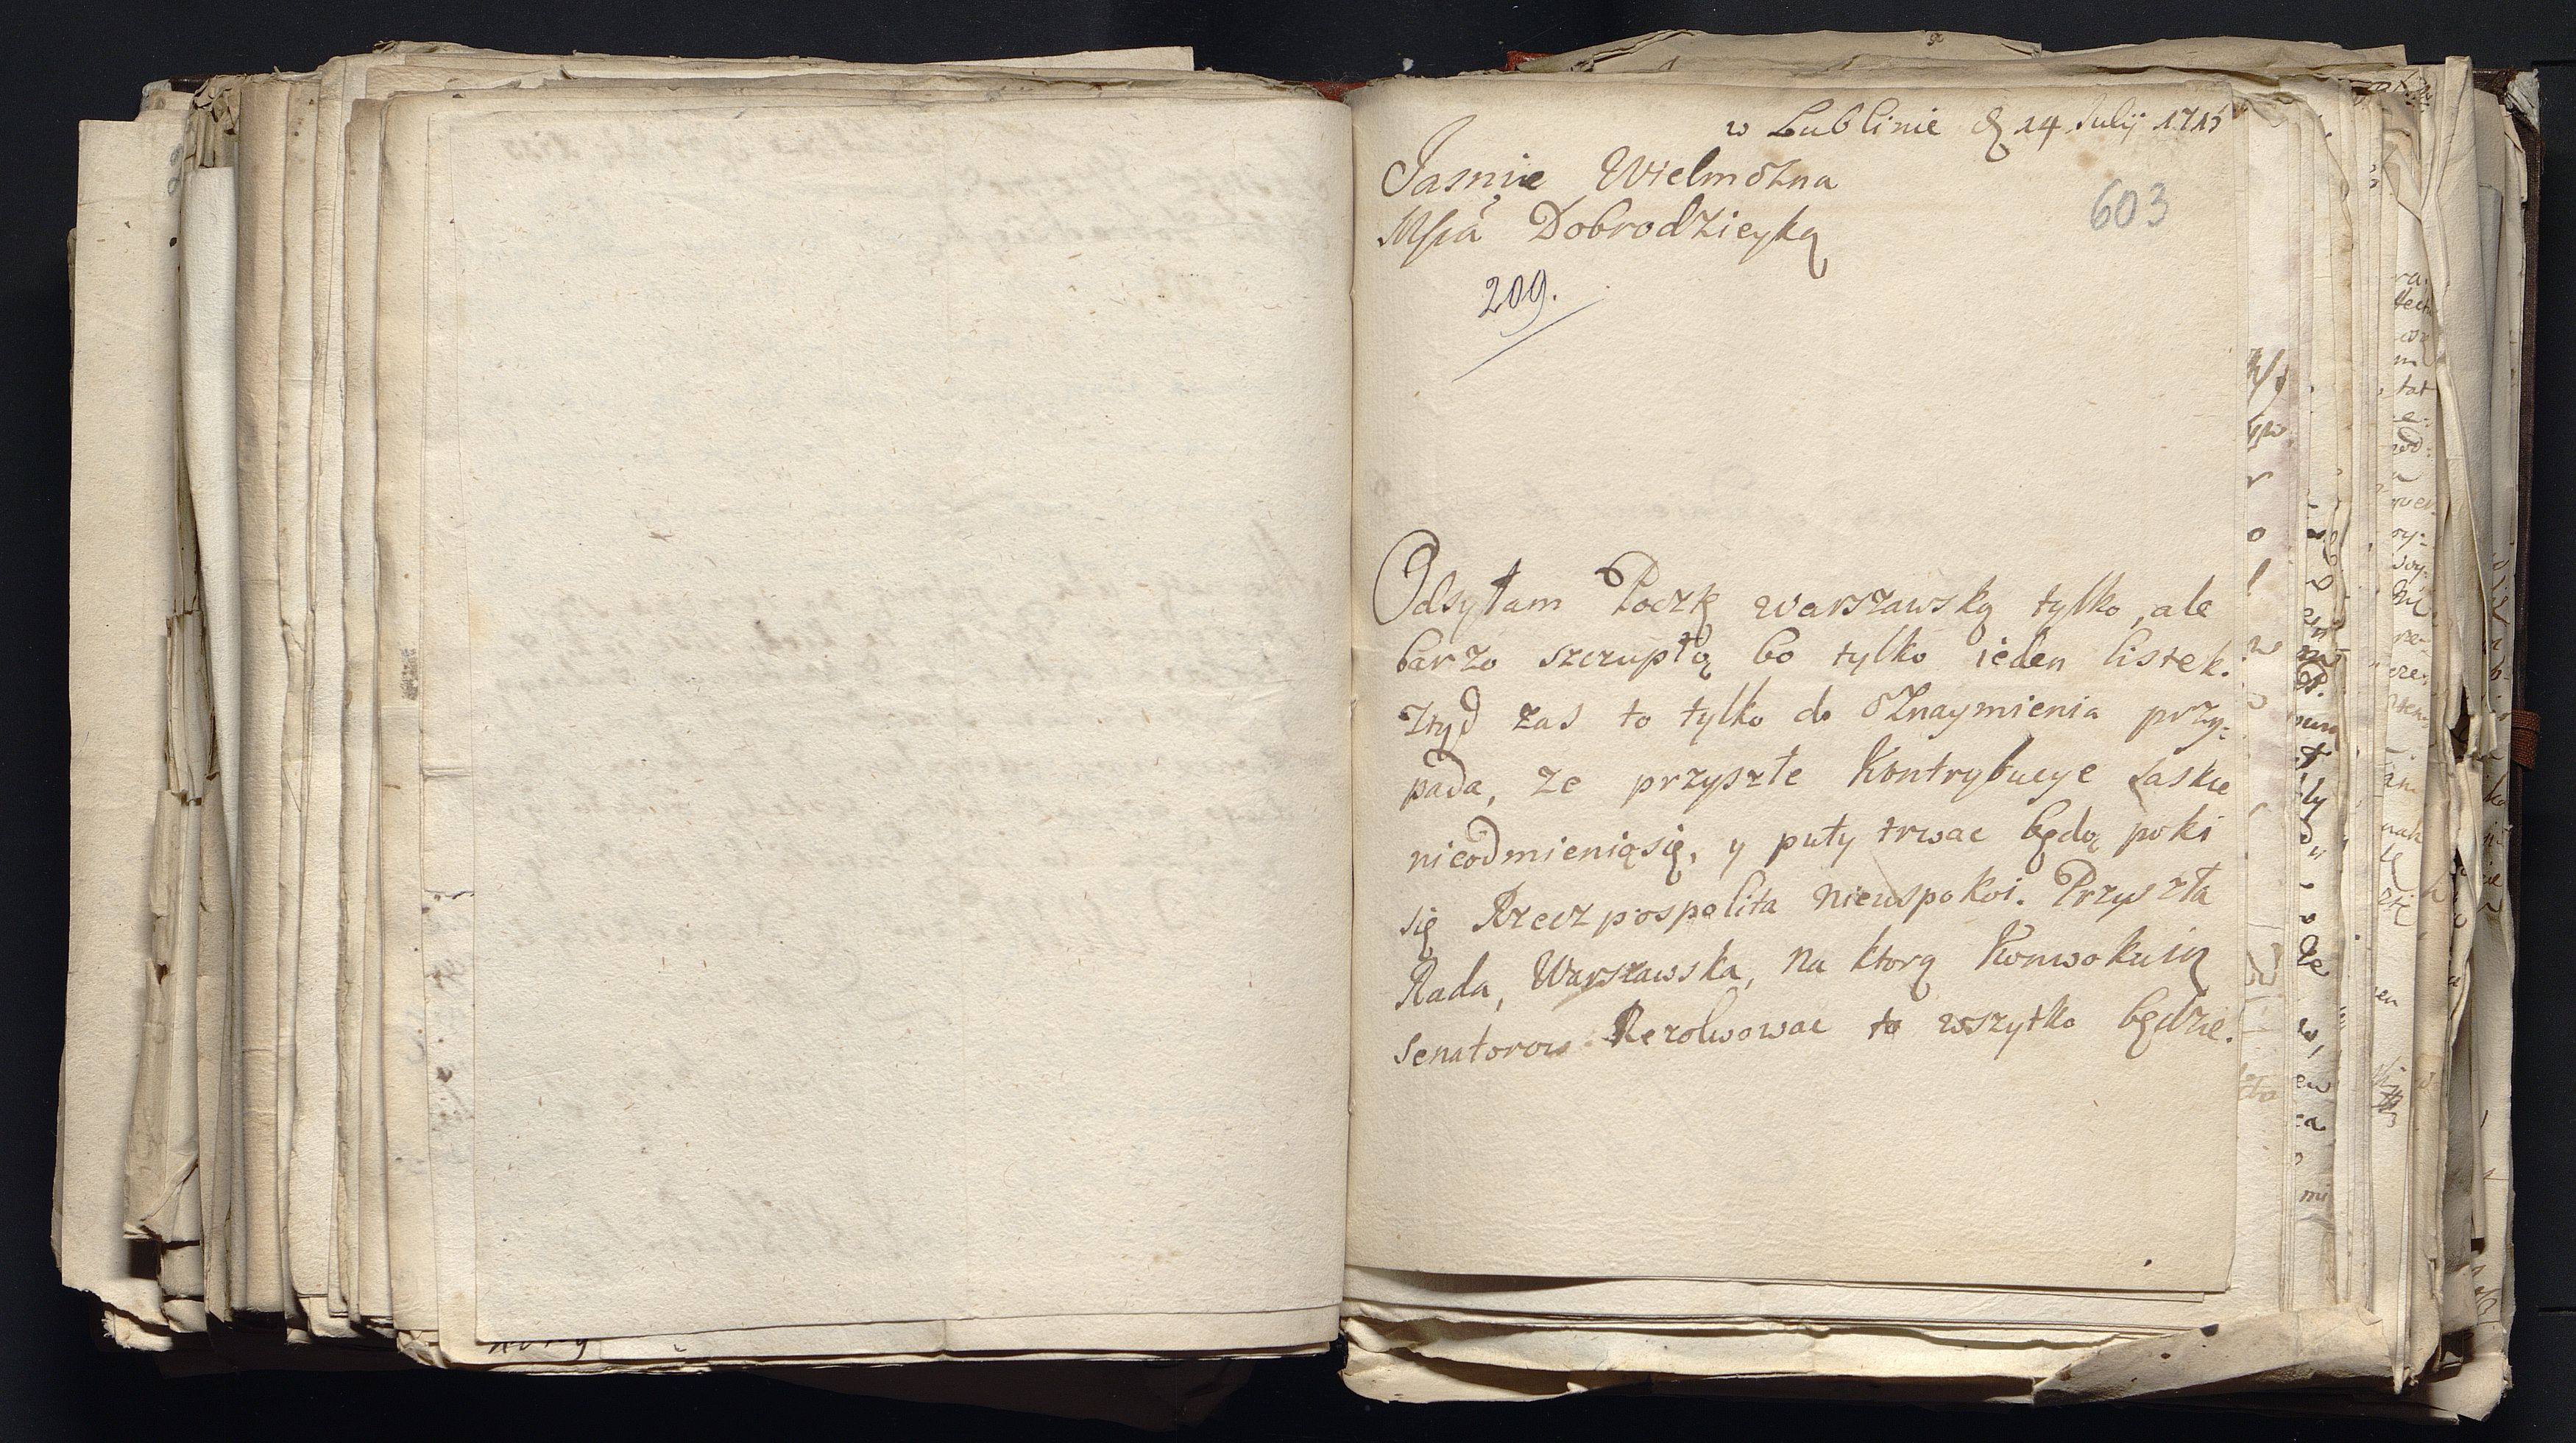 w Lublinie d 14 Julij 1715
Jasnie Wielmozna
Mscia Dobrodzieyko
603
209.
Odsyłam Pocztę warszawską tylko, ale
barzo szczupłą bo tylko ieden listek.
Ztyd zas to tylko do Oznaymienia przy:
pada, ze przyszłe Kontrybucye saskie
nieodmienią się, y puty trwac będą poki
się Rzeczpospolita nieuspokoi. Przyszła
Rada, Warszawska, na ktorą Konwokuią
Senatorow Rezolwowac to wszytko będzie.